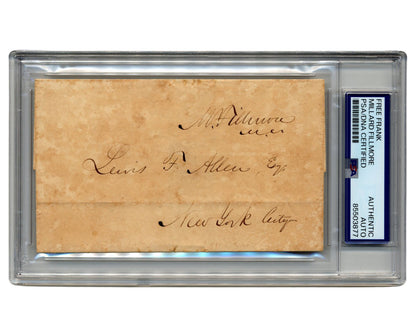 M. Fillmore
M.C.
Lewis F. Allen, Esq.
New York City
FREE FRANK
MILLARD FILLMORE
PSA/DNA CERTIFIED
AUTHENTIC
AUTO
85503877